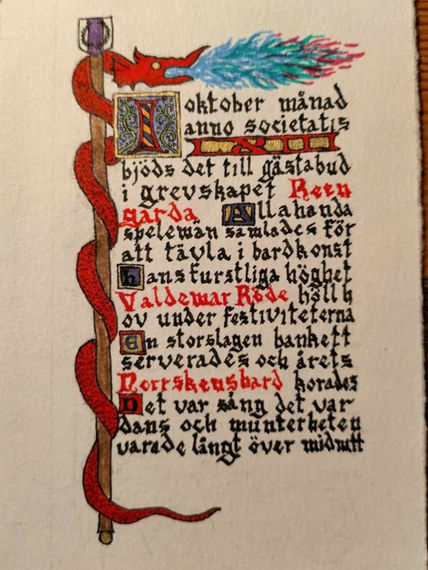 I oktober månad
anno societatis
bjöds det till gästabud
i grevskapet Reen
garda Allahanda
speleman samlades för
att tävla i bardkonst
hans furstliga höghet
Valdemar Röde höll h
ov under festiviteterna
En storslagen bankett
serverades och årets
Norrskensbard korades
Det var sång det var
dans och munterheten
varade långt över midnatt